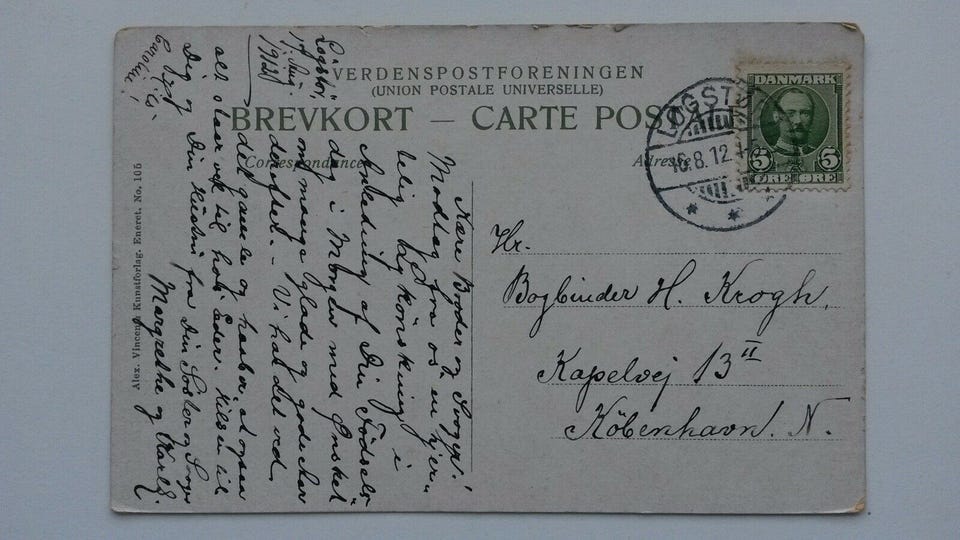 VERDENSPOSTFORENINGEN
(UNION POSTALE UNIVERSELLE)
BREVKORT — CARTE POSTALE
Correspondance
Adresse
LØGSTØR
16.8.12
DANMARK
5 5
ØRE ØRE
Hr.
Bogbinder H. Krogh,
Kapelvej 13 II
København. N.
Løgstør,
Aug.
1912
Kære Broder og Svoger!
Modtag fra os en hjer=
telig Lykönskning i
Anledning af Din Födsels
dag i Morgen med Ønsket
om mange glade og gode Aar
derefter. – Vi har det ved
det gamle og haaber, at ogsaa
alt staar vel til hos Eder. Hilsen til
Dig og Din Hustru fra Din Søster og Svoger
Margrethe og
Alex. Vincents Kunstforlag. Eneret. No. 165